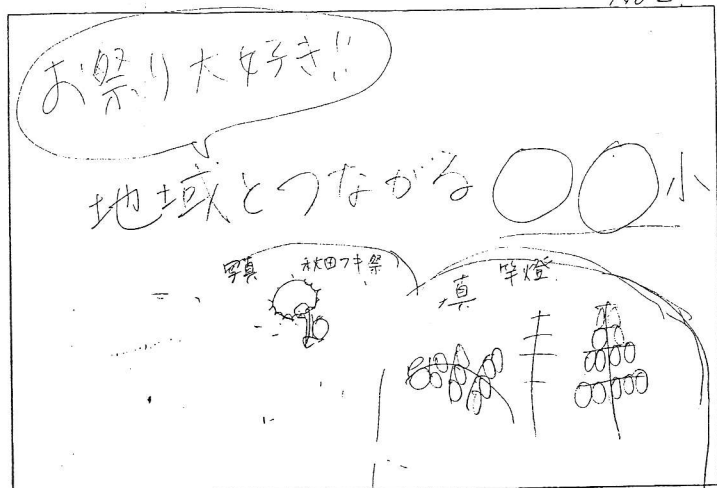 No 2.
お祭り大好き!!
地域とつながる〇〇小
写真 秋田フキ祭
真 竿燈